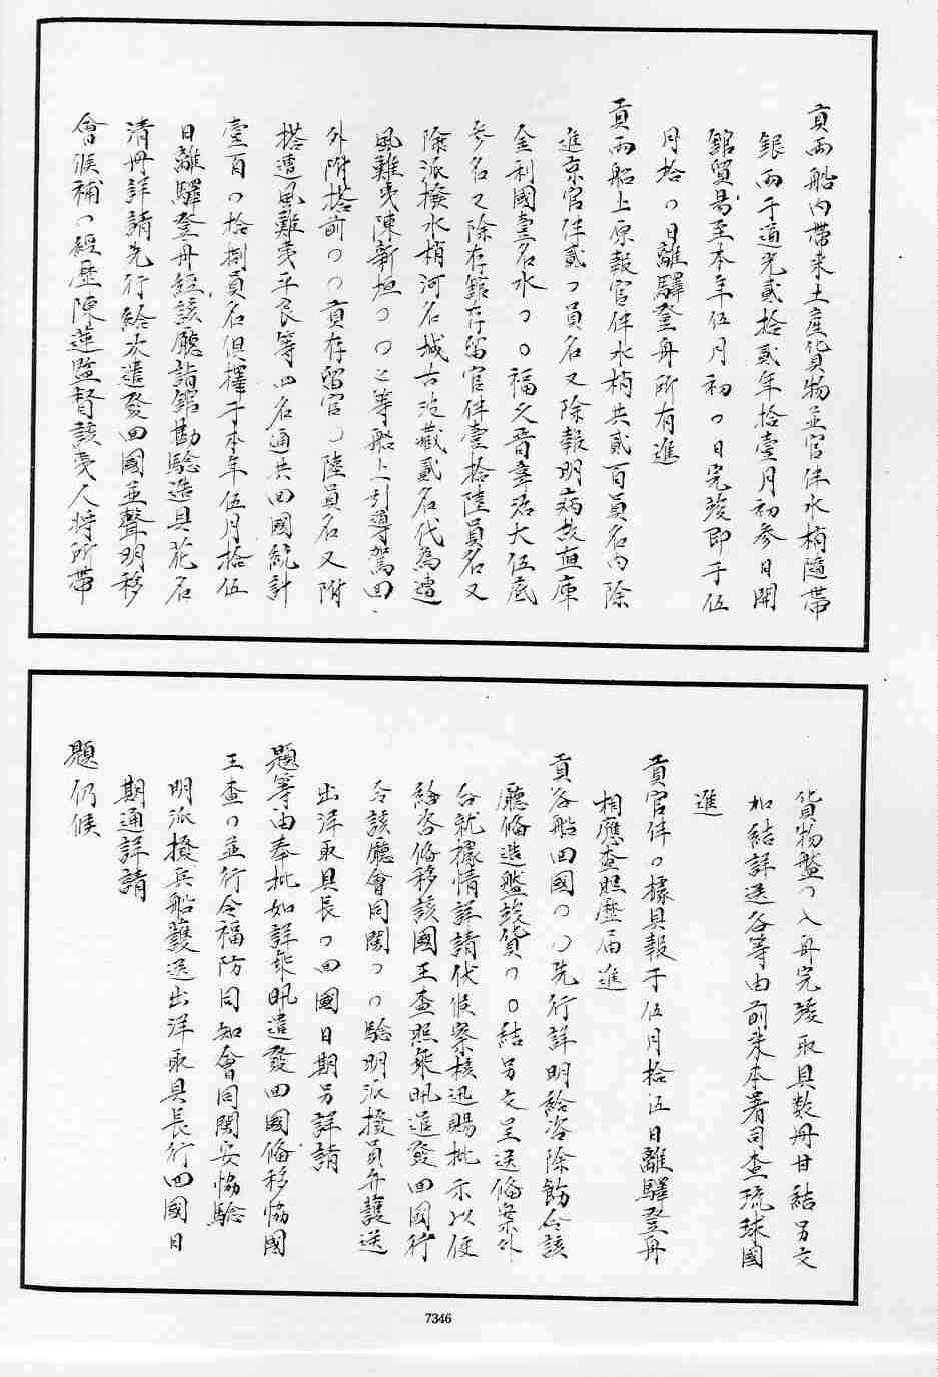 貢兩船內帶來土產貨物並官伴水梢隨帶
銀兩于道光貳拾貳年拾壹月初參日開
館貿易至本年伍月初〇日完竣即于伍
月拾〇日離驛登舟所有進
貢兩船上原報官伴水梢共貳百員名內除
進京官伴貳〇員名又除報明病故
金利國壹名水〇〇福久晋
參名又除存館存留官伴壹拾陸員名又
除派撥水梢河名城古治藏貳名代為遭
風難夷陳新垣〇〇之等船上引導駕回
外附搭前〇〇貢存留官〇陸員名又附
搭遭風難夷平良等四名通共回國統計
壹百〇拾捌員名俱擇于本年伍月拾伍
日離驛登舟經該廳詣館勘驗造具花名
清冊詳請先行給咨遣發回國並聲明移
會候補〇經歷陳蓮監督該夷人將所帶
貨物盤〇入舟完竣取具數冊甘結另文
加結詳送各等由前來本署司查琉球國
進
貢官伴〇據具報于伍月拾伍日離驛登舟
相應查照歷屆進
貢谷船回國〇〇先行詳明給咨除飭令該
廳俻造艦竣貨〇〇結另文呈送俻案外
合就據情詳請伏候察核迅賜批示以便
繕咨俻移該國王查照飭遣發回國行
令該廳會同閩〇〇驗明派撥員弁護送
出洋取具長〇回國日期另詳請
題等由奉批如詳飭遣發回國俻移協國
王查〇並行令福防同知會同閩安協驗
明派撥兵船護送出洋取具長行回國日
期通詳請
題仍候
7346